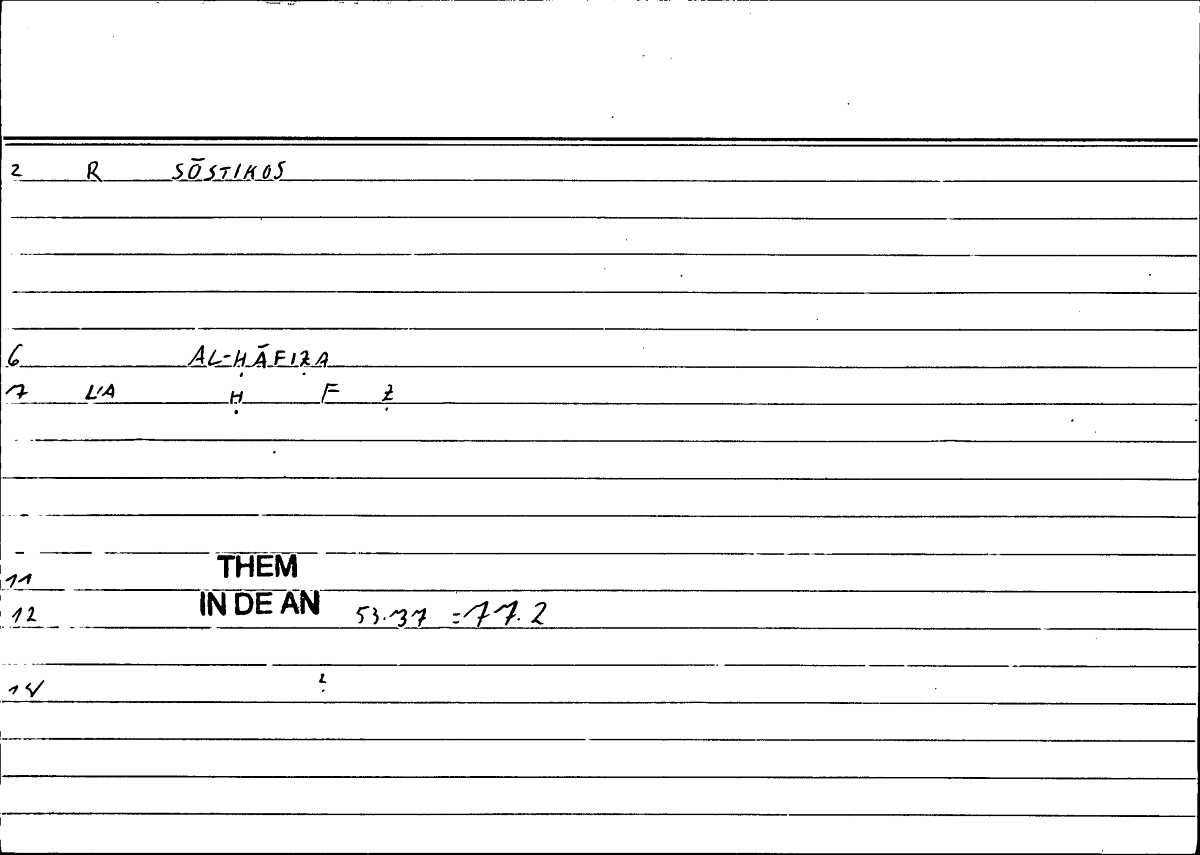 2 R SŌSTIKOS
6 AL-ḤĀFIẒA
7 L'A Ḥ F Ẓ
11 THEM
12 IN DE AN 53.37 = 77.2
14